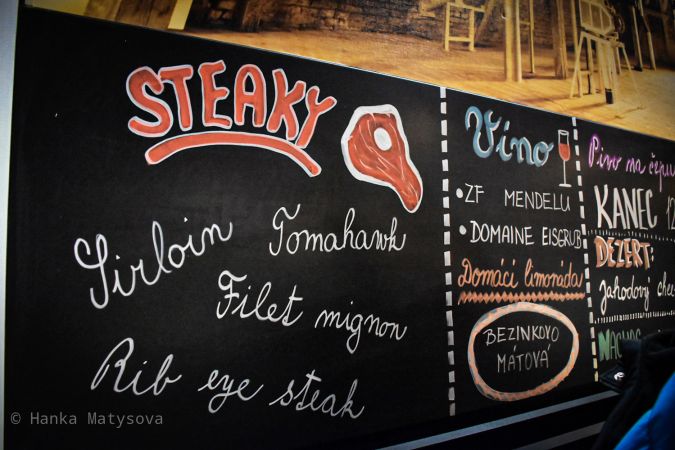 STEAKY
Sirloin Tomahawk
Filet mignon
Rib eye steak
Víno
•ZF MENDELU
•DOMAINE EISGRUB
Domácí limonáda
BEZINKOVO
MÁTOVÁ
Pivo na čepu
KANEC 12
DEZERT:
Jahodový
© Hanka Matysova